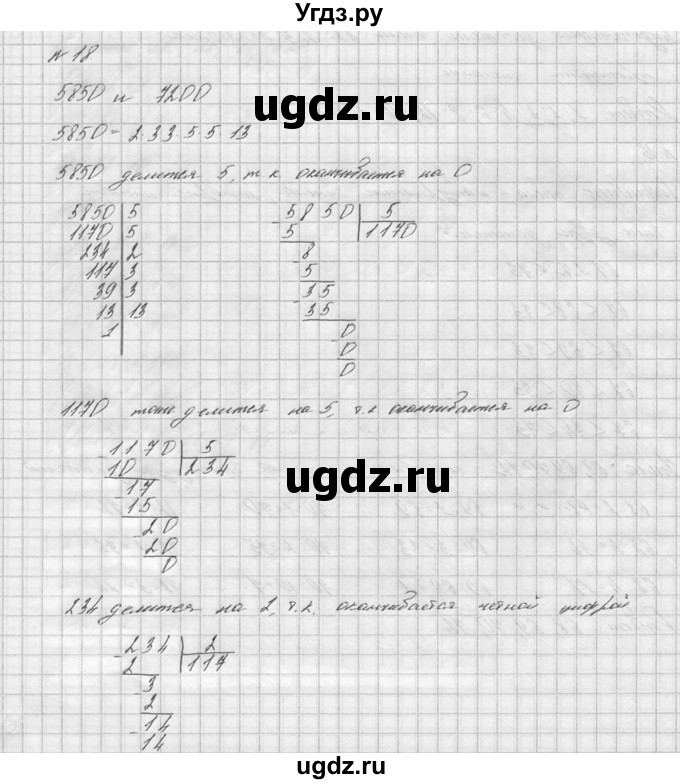 Угдз.ру
№ 18
5850 и 7200
5850 = 2·3·3·5·5·13
ugdz.ru
5850 делится 5, т.к оканчивается на 0
5850 | 5
1170 | 5
234 | 2
117 | 3
39 | 3
13 | 13
1
- 5850 | 5
5 1170
- 8
5
- 35
35
- 0
0
0
1170 тоже делится на 5, т.к оканчивается на 0
- 1170 | 5
10 234
- 17
15
- 20
20
0
ugdz.ru
234 делится на 2, т.к. оканчивается чётной цифрой
- 234 | 2
2 117
- 3
2
- 14
14
ugdz.ru